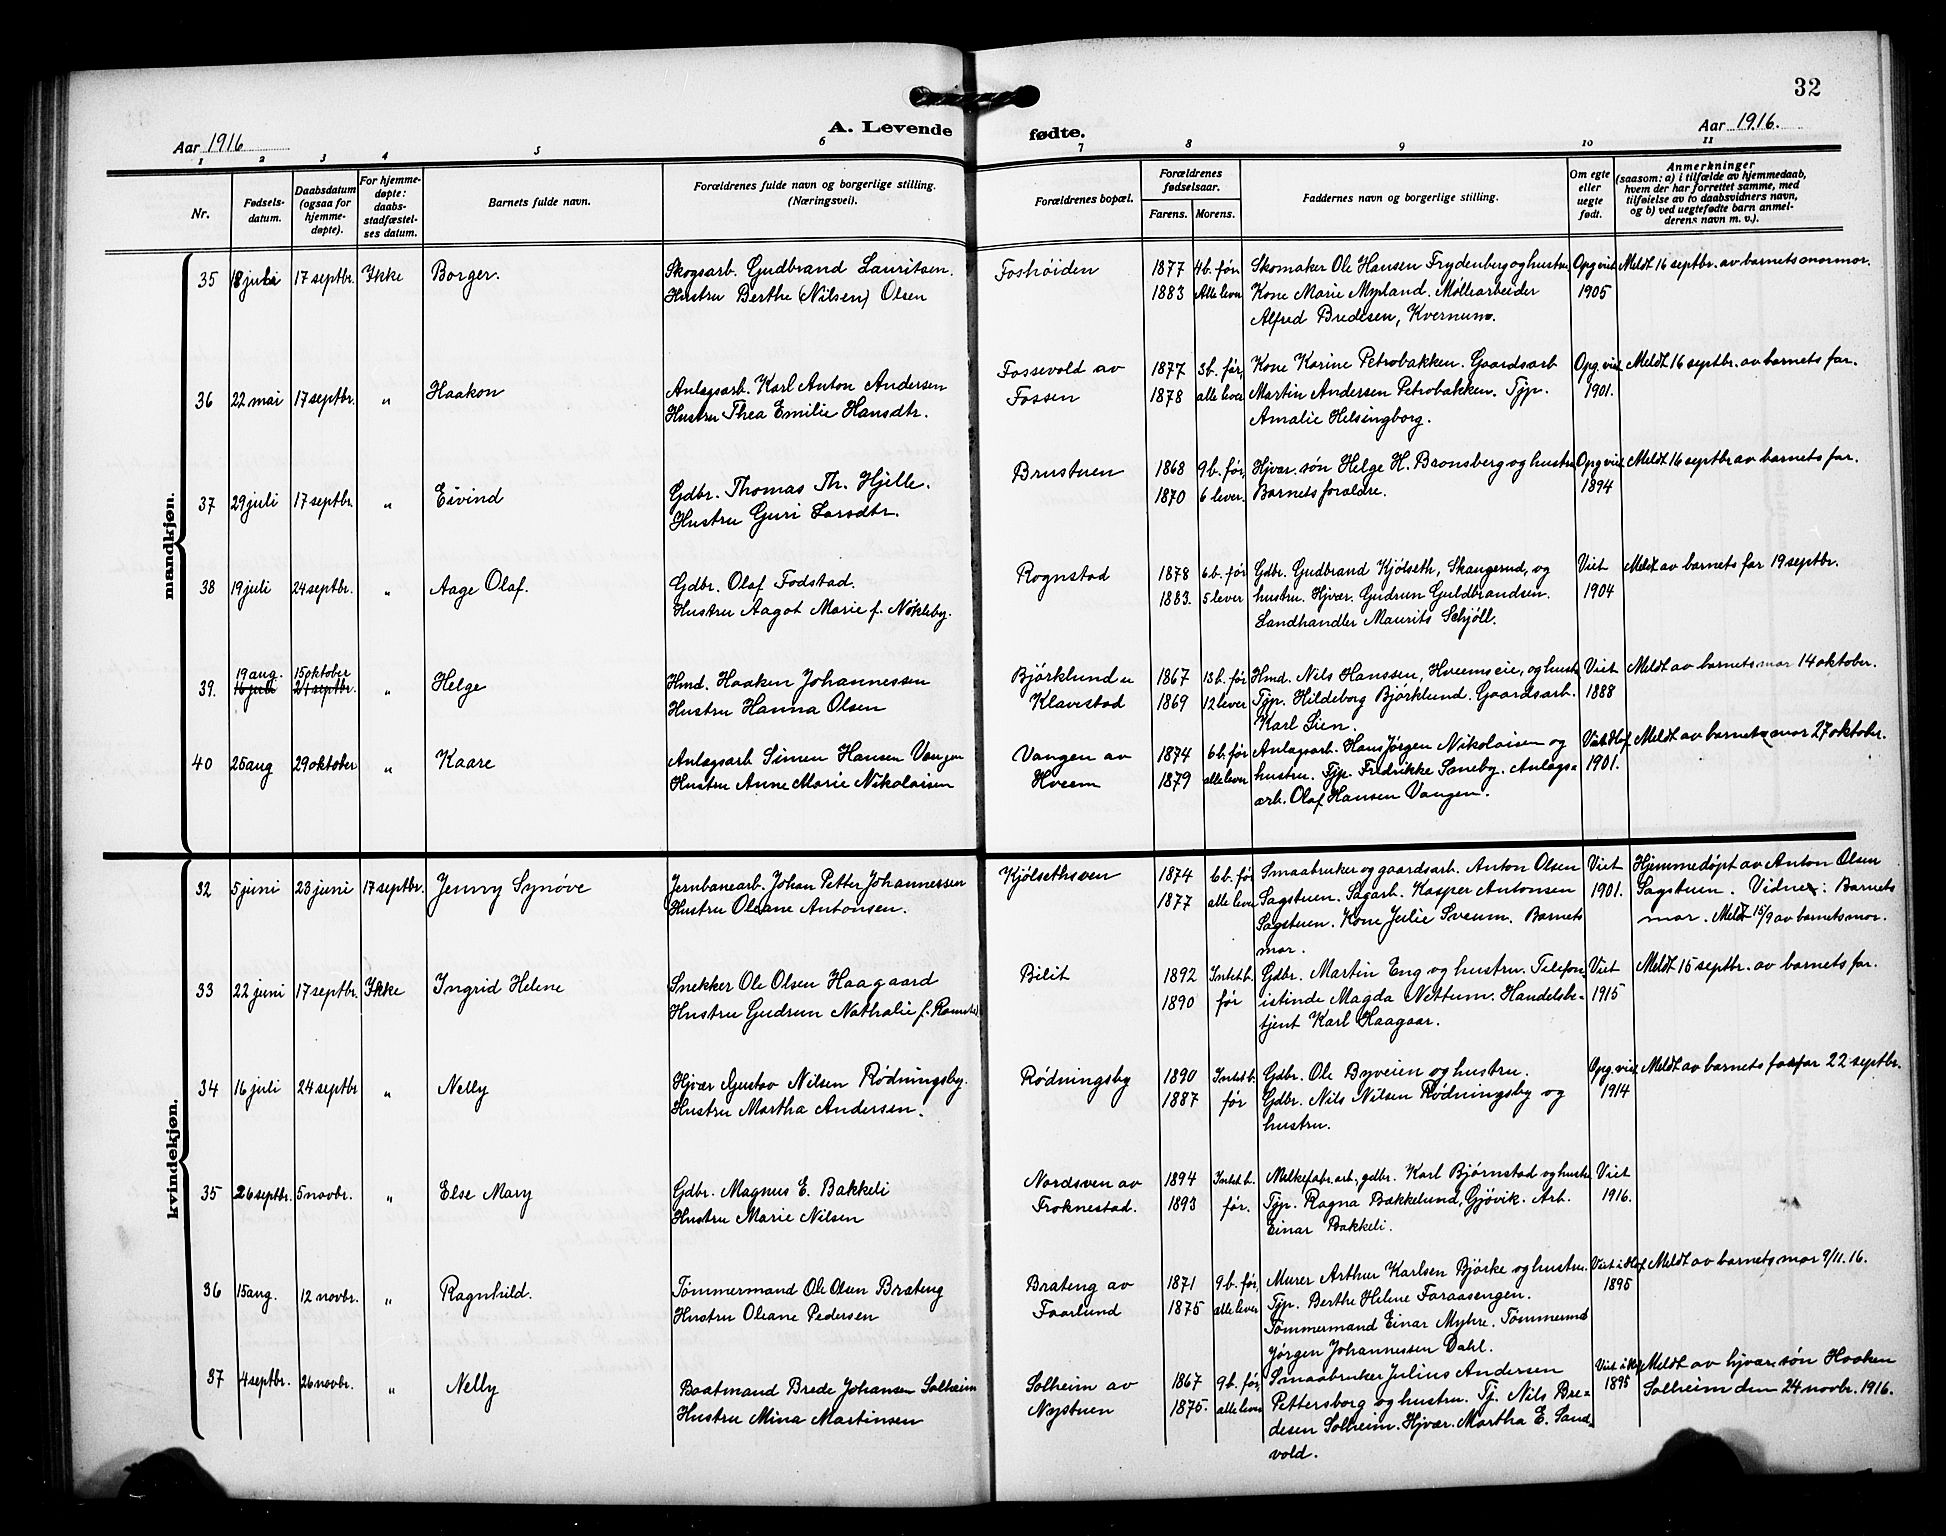 32
A. Levende fødte.
Aar 1916
Aar 1916.
1 2 3 4 5 6 7 8 9 10 11
Nr.
Fødsels-
datum.
Daabsdatum
(ogsaa for
hjemme-
døpte).
For hjemme-
døpte:
daabs-
stadfæstel-
ses datum.
Barnets fulde navn.
Forældrenes fulde navn og borgerlige stilling.
(Næringsvei).
Forældrenes bopæl.
Forældrenes
fødselsaar.
Farens. Morens.
Faddernes navn og borgerlige stilling.
Om egte
eller
uegte
født.
Anmerkninger
(saasom: a) i tilfælde av hjemmedaab,
hvem der har forrettet samme, med
tilføielse av to daabsvidners navn,
og b) ved uegtefødte barn anmel-
derens navn m. v.).
mandkjøn.
35 18 juli 17 septbr. Ikke Borger. Skogsarb. Gudbrand Lauritsen. Foshöiden 1877 4 b. før Skomaker Ole Hansen Frydenberg og hustru Opg. viet Meldt 16 septbr. av barnets mormor.
Hustru Berthe (Nilsen) Olsen 1883 Alle lever Kone Marie Mykland. Møllearbeider 1905
Alfred Bredesen, Kvernum.
36 22 mai 17 septbr. " Haakon Anlagsarb. Karl Anton Andersen Fossevold av 1877 3 b. før, Kone Karine Petrobakken. Gaardsarb Opg. viet Meldt 16 septbr. av barnets far.
Hustru Thea Emilie Hansdtr. Fossen 1878 alle lever Martin Andersen Petrobakken. Tjp. 1901.
Amalie Helsingborg.
37 29 juli 17 septbr. " Eivind Gdbr. Thomas Th. Hjelle. Brustuen 1868 9 b. før, Hjvar. søn Helge H. Bronsberg og hustru Opg. viet Meldt 16 septbr av barnets far.
Hustru Guri Larsdtr. 1870 6 lever. Barnets forældre. 1894
38 19 juli 24 septbr. " Aage Olaf. Gdbr. Olaf Fodstad. Rognstad 1878 6 b. før Gdbr. Gudbrand Kjölseth, Skangerud, og Viet Meldt av barnets far 19 septbr.
Hustru Aagot Marie f. Nøkleby. 1883. 5 lever hustru. Hjvær. Gudrun Guldbrandsen. 1904
Landhandler Maurits Schjöll.
19 aug. 15 oktober
39. 16 juli 24 septbr. " Helge Hmd. Haaken Johannessen Bjørklund u 1867 13 b. før Hmd. Nils Hanssen, Hveemseie, og hustr. Viet Meldt av barnets mor 14 oktober.
Hustru Hanna Olsen Klavestad 1869 12 lever Tjp. Hildeborg Bjørklund. Gaardsarb. 1888
Karl Lien.
40 25 aug 29 oktober " Kaare Anlagsarb Simen Hansen Vangen Vangen av 1874 6 b. før Anlagsarb. Hans Jørgen Nikolaisen og Viet Meldt av barnets mor 27 oktober.
Hustru Anne Marie Nikolaisen Hveem 1879 alle lever hustru. Tjp. Fredrikke Saneby. Anlags= 1901.
arb. Olaf Hansen Vangen.
kvindekjøn.
32 5 juni 23 juni 17 septbr. Jenny Synöve Jernbanearb. Johan Petter Johannessen Kjölsethsven 1874 6 b. før Smaabruker og gaardsarb. Anton Olsen Viet Hjemmedøpt av Anton Olsen
Hustru Oleane Antonsen. 1877 alle lever Sagstuen. Sagarb. Kasper Antonsen 1901. Sagstuen. Vidne: Barnets
Sagstuen. Kone Julie Sveum. Barnets mor. Meldt 15/9 av barnets mor.
mor.
33 22 juni 17 septbr. Ikke Ingrid Helene Snekker Ole Olsen Haagaard Bilit 1892 Intet b. Gdbr. Martin Eng og hustru. Telefon= Viet Meldt 15 septbr. av barnets far.
Hustru Gudrun Nathalie f. 1890 før istinde Magda Nettum. Handelsbe= 1915
tjent Karl Haagaar.
34 16 juli 24 septbr " Nelly Hjvær Gustav Nilsen Rødningsby. Rødningsby 1890 Intet b. Gdbr. Ole Byveien og hustru. Opg. viet Meldt av barnets farfar 22 septbr.
Hustru Martha Andersen. 1887 før Gdbr. Nils Nilsen Rødningsby og 1914
hustru.
35 26 septbr. 5 novbr. " Else Mary Gdbr. Magnus E. Bakkeli Nordsven av 1894 Intet b. Melkefabr. arb., gdbr. Karl Bjørnstad og hustr. Viet
Hustru Marie Nilsen Froknestad. 1893 før. Tjp. Ragna Bakkelund, Gjøvik. Arb. 1916.
Einar Bakkeli.
36 15 aug. 12 novbr. " Ragnhild. Tømmermand Ole Olsen Brateng Brateng av 1871 9 b. før, Murer Arthur Karlsen Bjørke og hustru. Viet i Meldt av barnets mor 9/11. 16.
Hustru Oleane Pedersen Faarlund 1875 alle lever Tjp. Berthe Helene Faraasengen. 1895
Tømmermand Einar Myhre. Tømmermd
Jørgen Johannessen Dahl.
37 4 septbr. 26 novbr. " Nelly Baatmand Brede Johansen Solheim Solheim av 1867 9 b. før, Smaabruker Julius Andersen Viet i Meldt av hjvær. søn Haaken
Hustru Mina Martinsen Nystuen 1875. alle lever Pettersborg og hustru. Tj. Nils Bre= 1895 Solheim den 24 novbr. 1916.
desen Solheim. Hjvær. Martha E. Sand=
vold.